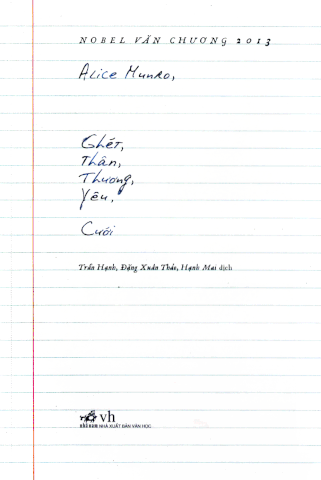 NOBEL VĂN CHƯƠNG 2013
Alice Munro,
Ghét,
Thân,
Thương,
Yêu,
Cưới
Trần Hạnh, Đặng Xuân Thảo, Hạnh Mai dịch
vh
NHÃ NAM NHÀ XUẤT BẢN VĂN HỌC